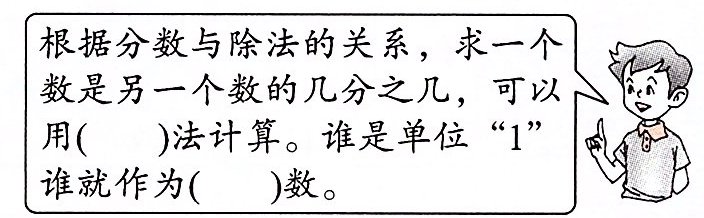 根据分数与除法的关系，求一个
数是另一个数的几分之几，可以
用(　　)法计算。谁是单位“1”
谁就作为(　　)数。